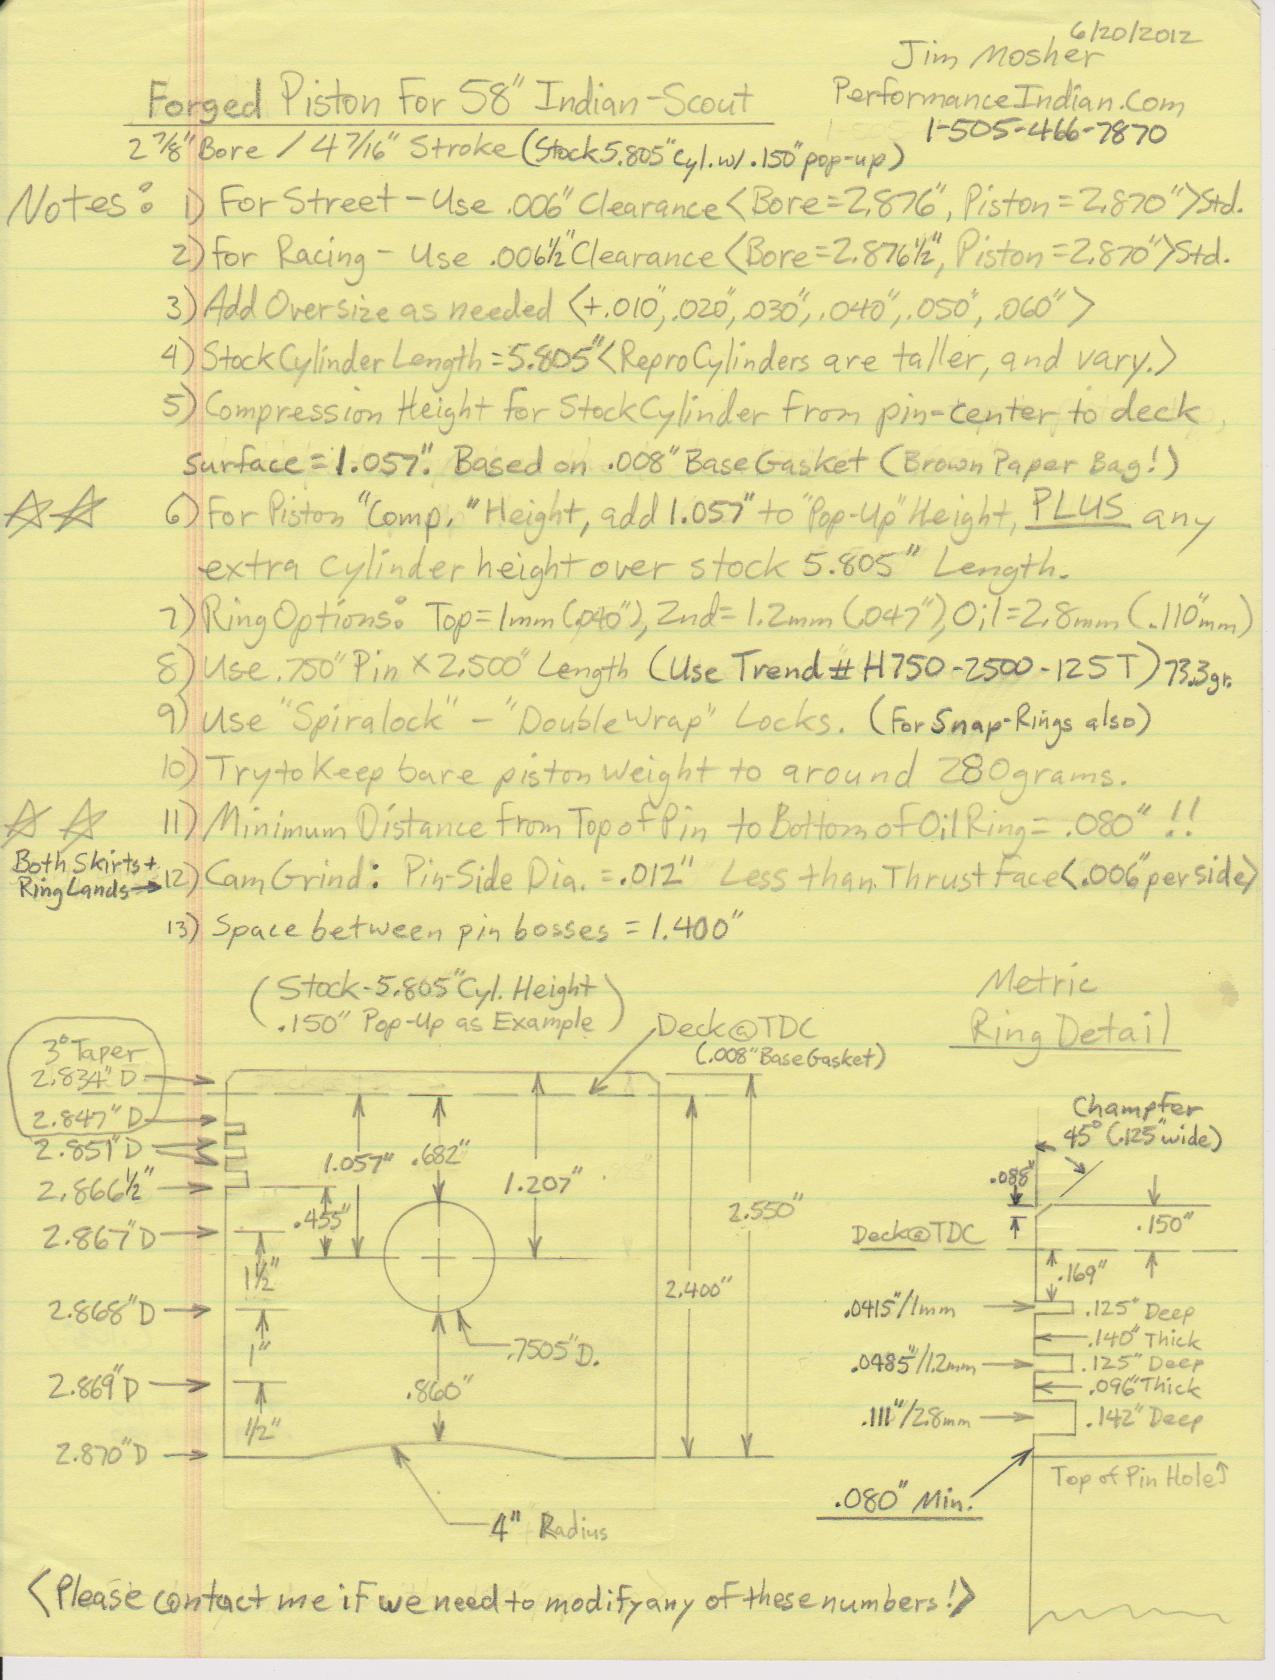 6/20/2012
Jim Mosher
PerformanceIndian.Com
1-505-466-7870
Forged Piston For 58" Indian-Scout
2 7/8" Bore / 4 7/16" Stroke (Stock 5.805" Cyl. w/ .150" pop-up)
Notes: 1) For Street - Use .006" Clearance <Bore=2.876", Piston=2.870"> Std.
2) For Racing - Use .006½" Clearance <Bore=2.876½", Piston=2.870"> Std.
3) Add Oversize as needed <+.010", .020", .030", .040", .050", .060">
4) Stock Cylinder Length = 5.805" <Repro Cylinders are taller, and vary.>
5) Compression Height for Stock Cylinder from pin-center to deck
surface = 1.057". Based on .008" Base Gasket (Brown Paper Bag!)
6) For Piston "Comp." Height, add 1.057" to "Pop-Up" Height, PLUS any
extra cylinder height over stock 5.805" Length.
7) Ring Options: Top = 1mm (.040"), 2nd = 1.2mm (.047"), Oil = 2.8mm (.110"mm)
8) Use .750" Pin x 2.500" Length (Use Trend # H750-2500-125T) 73.3gr.
9) Use "Spiralock" - "Double Wrap" Locks. (For Snap-Rings also)
10) Try to Keep bare piston weight to around 280 grams.
11) Minimum Distance from Top of Pin to Bottom of Oil Ring = .080" !!
Both Skirts +
Ring Lands → 12) Cam Grind: Pin-Side Dia. = .012" Less than Thrust Face <.006" per side>
13) Space between pin bosses = 1.400"
(Stock - 5.805" Cyl. Height
.150" Pop-Up as Example)
Deck @ TDC
(.008" Base Gasket)
3° Taper
2.834" D
2.847" D
2.851" D
2.866½"
2.867" D
2.868" D
2.869" D
2.870" D
1.057"
.682"
1.207"
.455"
2.550"
2.400"
1½"
1"
½"
.7505" D.
.860"
4" Radius
Metric
Ring Detail
Champfer
45° (.125" wide)
.088"
.150"
Deck @ TDC
.169"
.0415"/1mm
.125" Deep
.140" Thick
.0485"/1.2mm
.125" Deep
.096" Thick
.111"/2.8mm
.142" Deep
Top of Pin Hole ↑
.080" Min.
<Please contact me if we need to modify any of these numbers!>